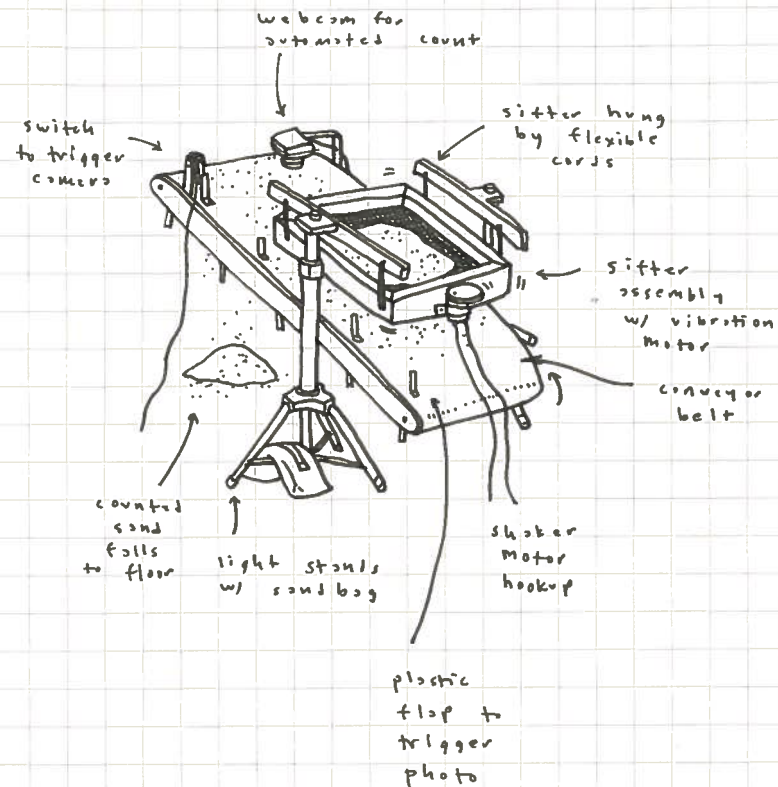 webcam for
automated count
switch
to trigger
camera
sifter hung
by flexible
cords
sifter
assembly
w/ vibration
motor
conveyor
belt
counted
sand
falls
to floor
light stands
w/ sand bag
shaker
motor
hookup
plastic
flap to
trigger
photo